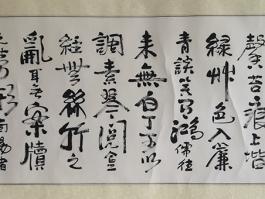 馨苔痕上階
綠艸色入簾
青談笑有鴻儒往
來無白丁可以
調素琴閱金
經無絲竹之
亂耳無案牘
之勞形南陽諸